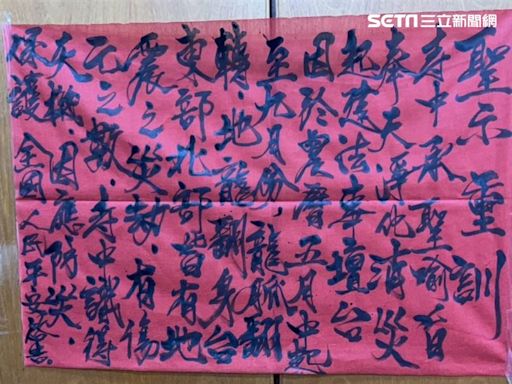 SETN三立新聞網
聖示重訓
寺中承聖喻旨
奉天淨化消災
起建法事壇台
因於農曆五月中起
至九月份，龍脈翻
轉，地龍翻身台
東部北部皆有地
震之災劫，有傷
亡之數，寺中識得
天機，因應防災，
保護全國人民平安